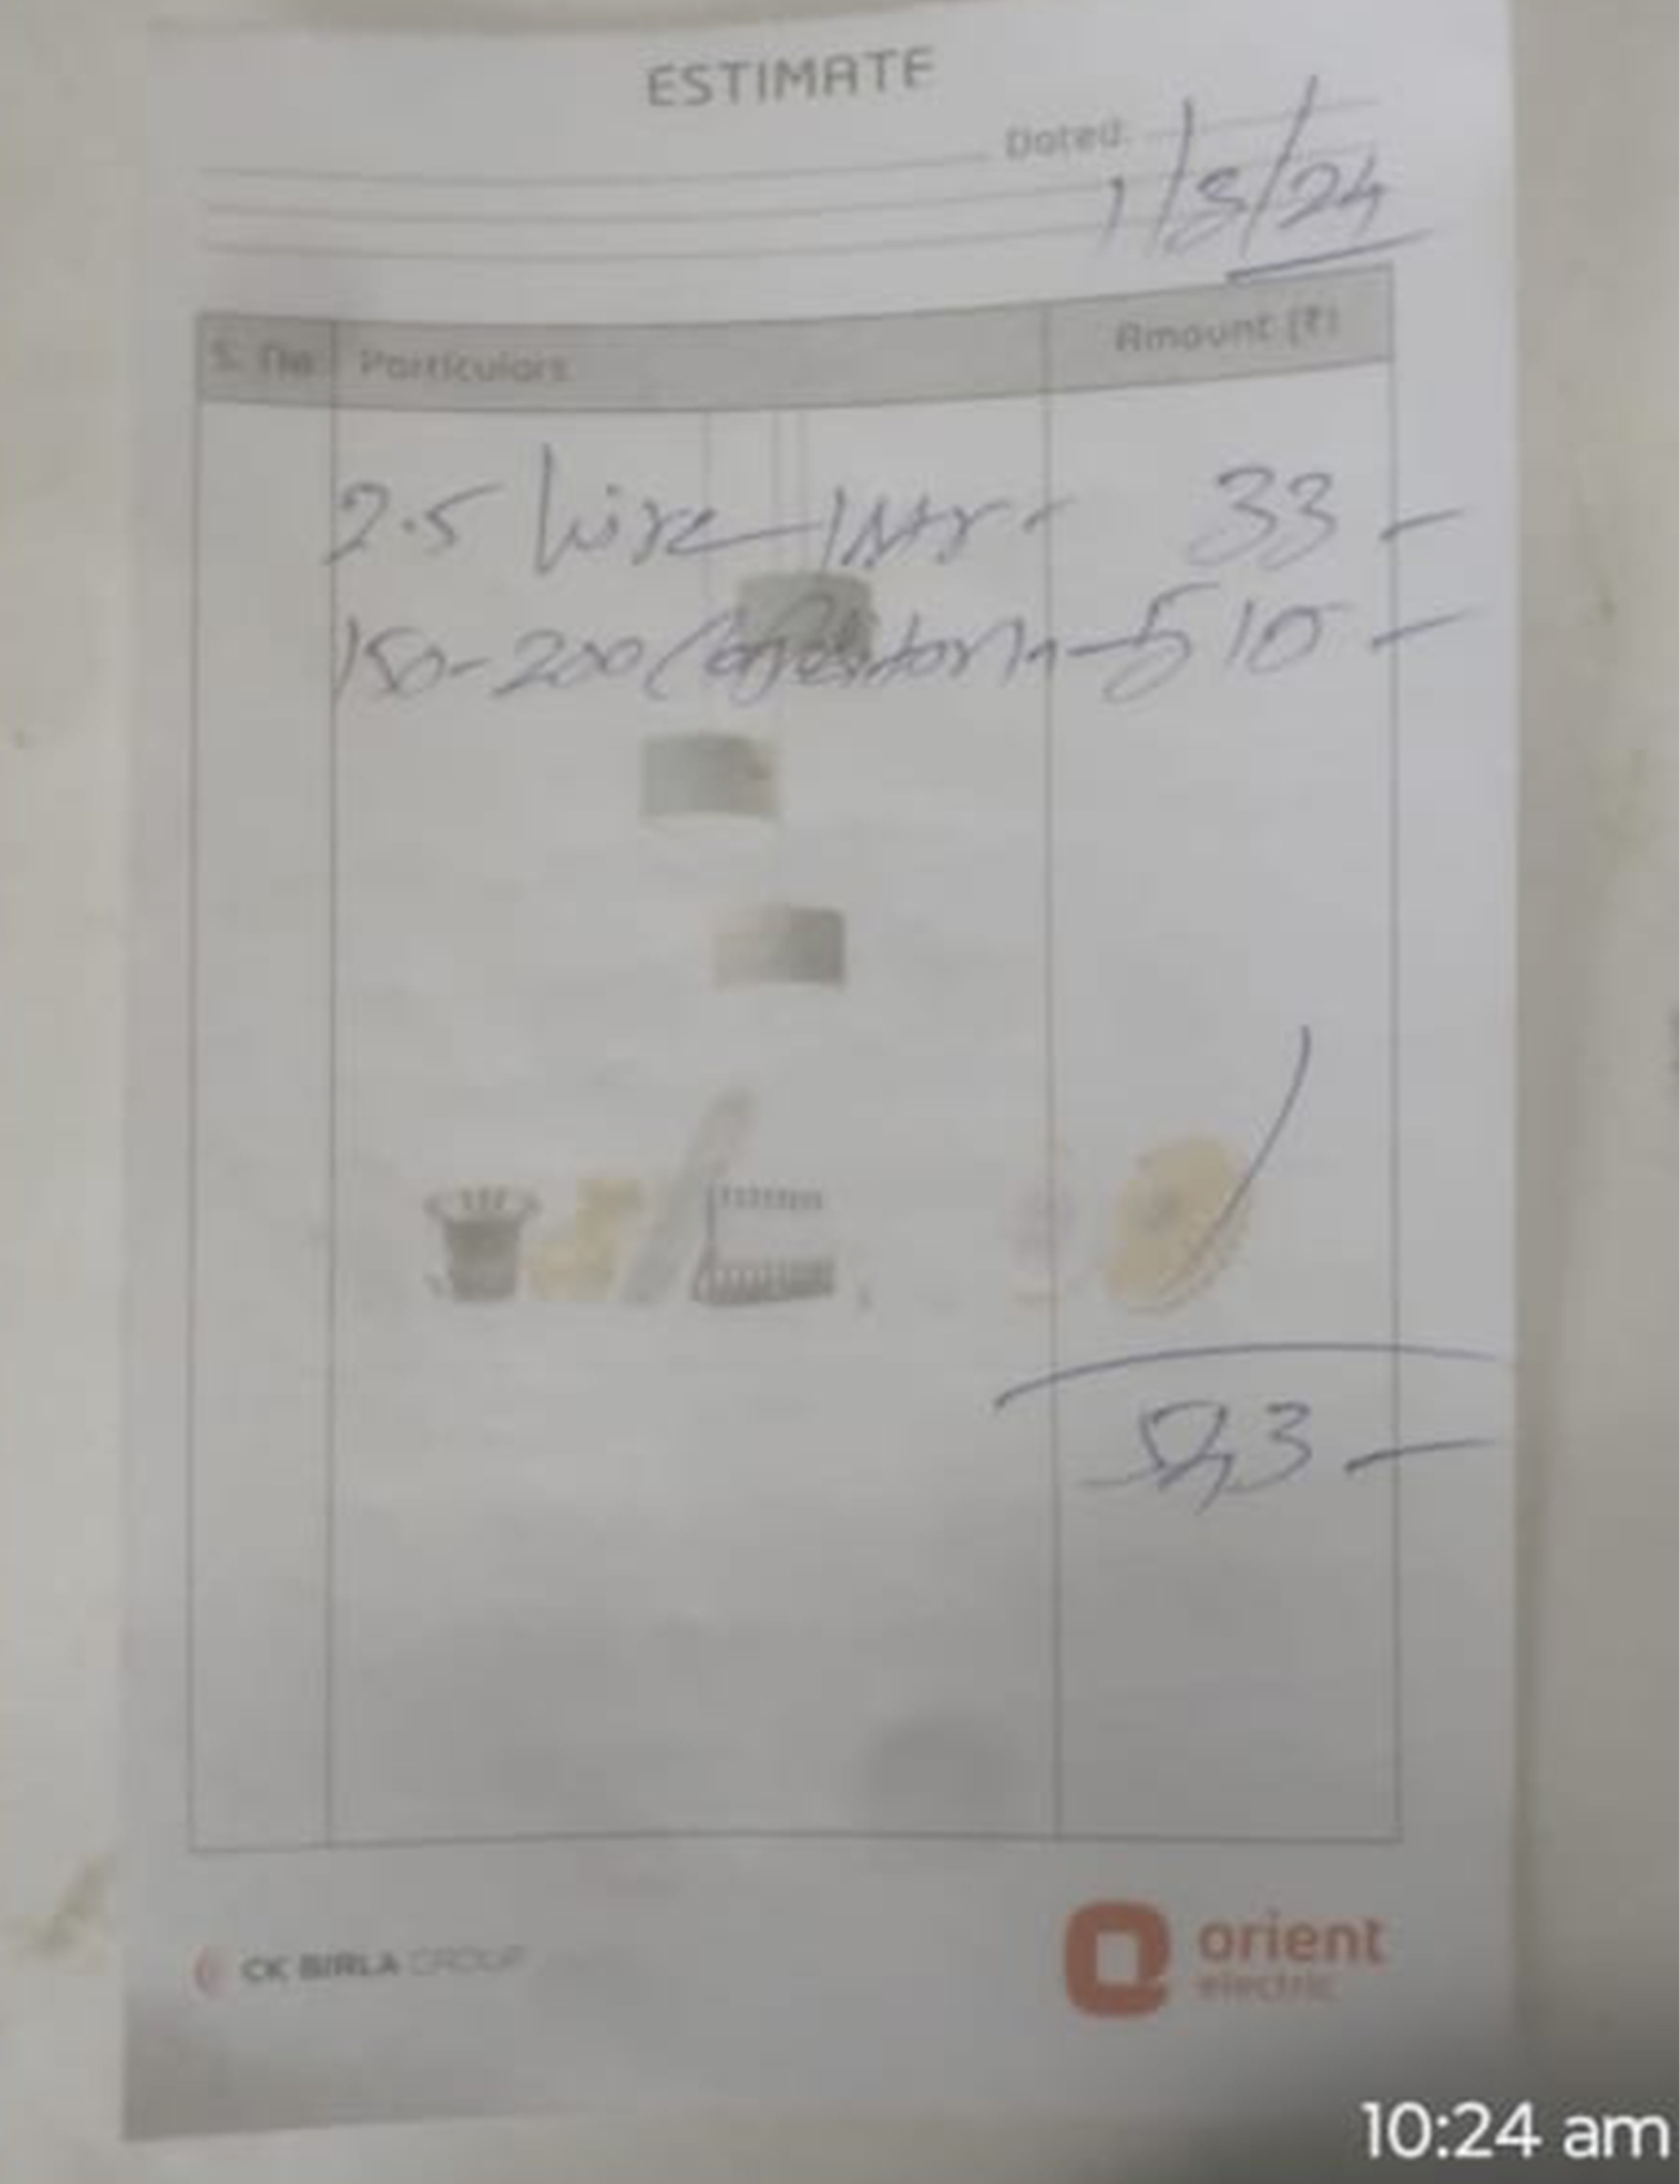 ESTIMATE
Dated:
1/8/24
S. No Particulars Amount (₹)
2.5 wire 1Mtr - 33 -
150-200 Capacitor 1n - 510 -
543 -
CK BIRLA GROUP
orient
electric
10:24 am